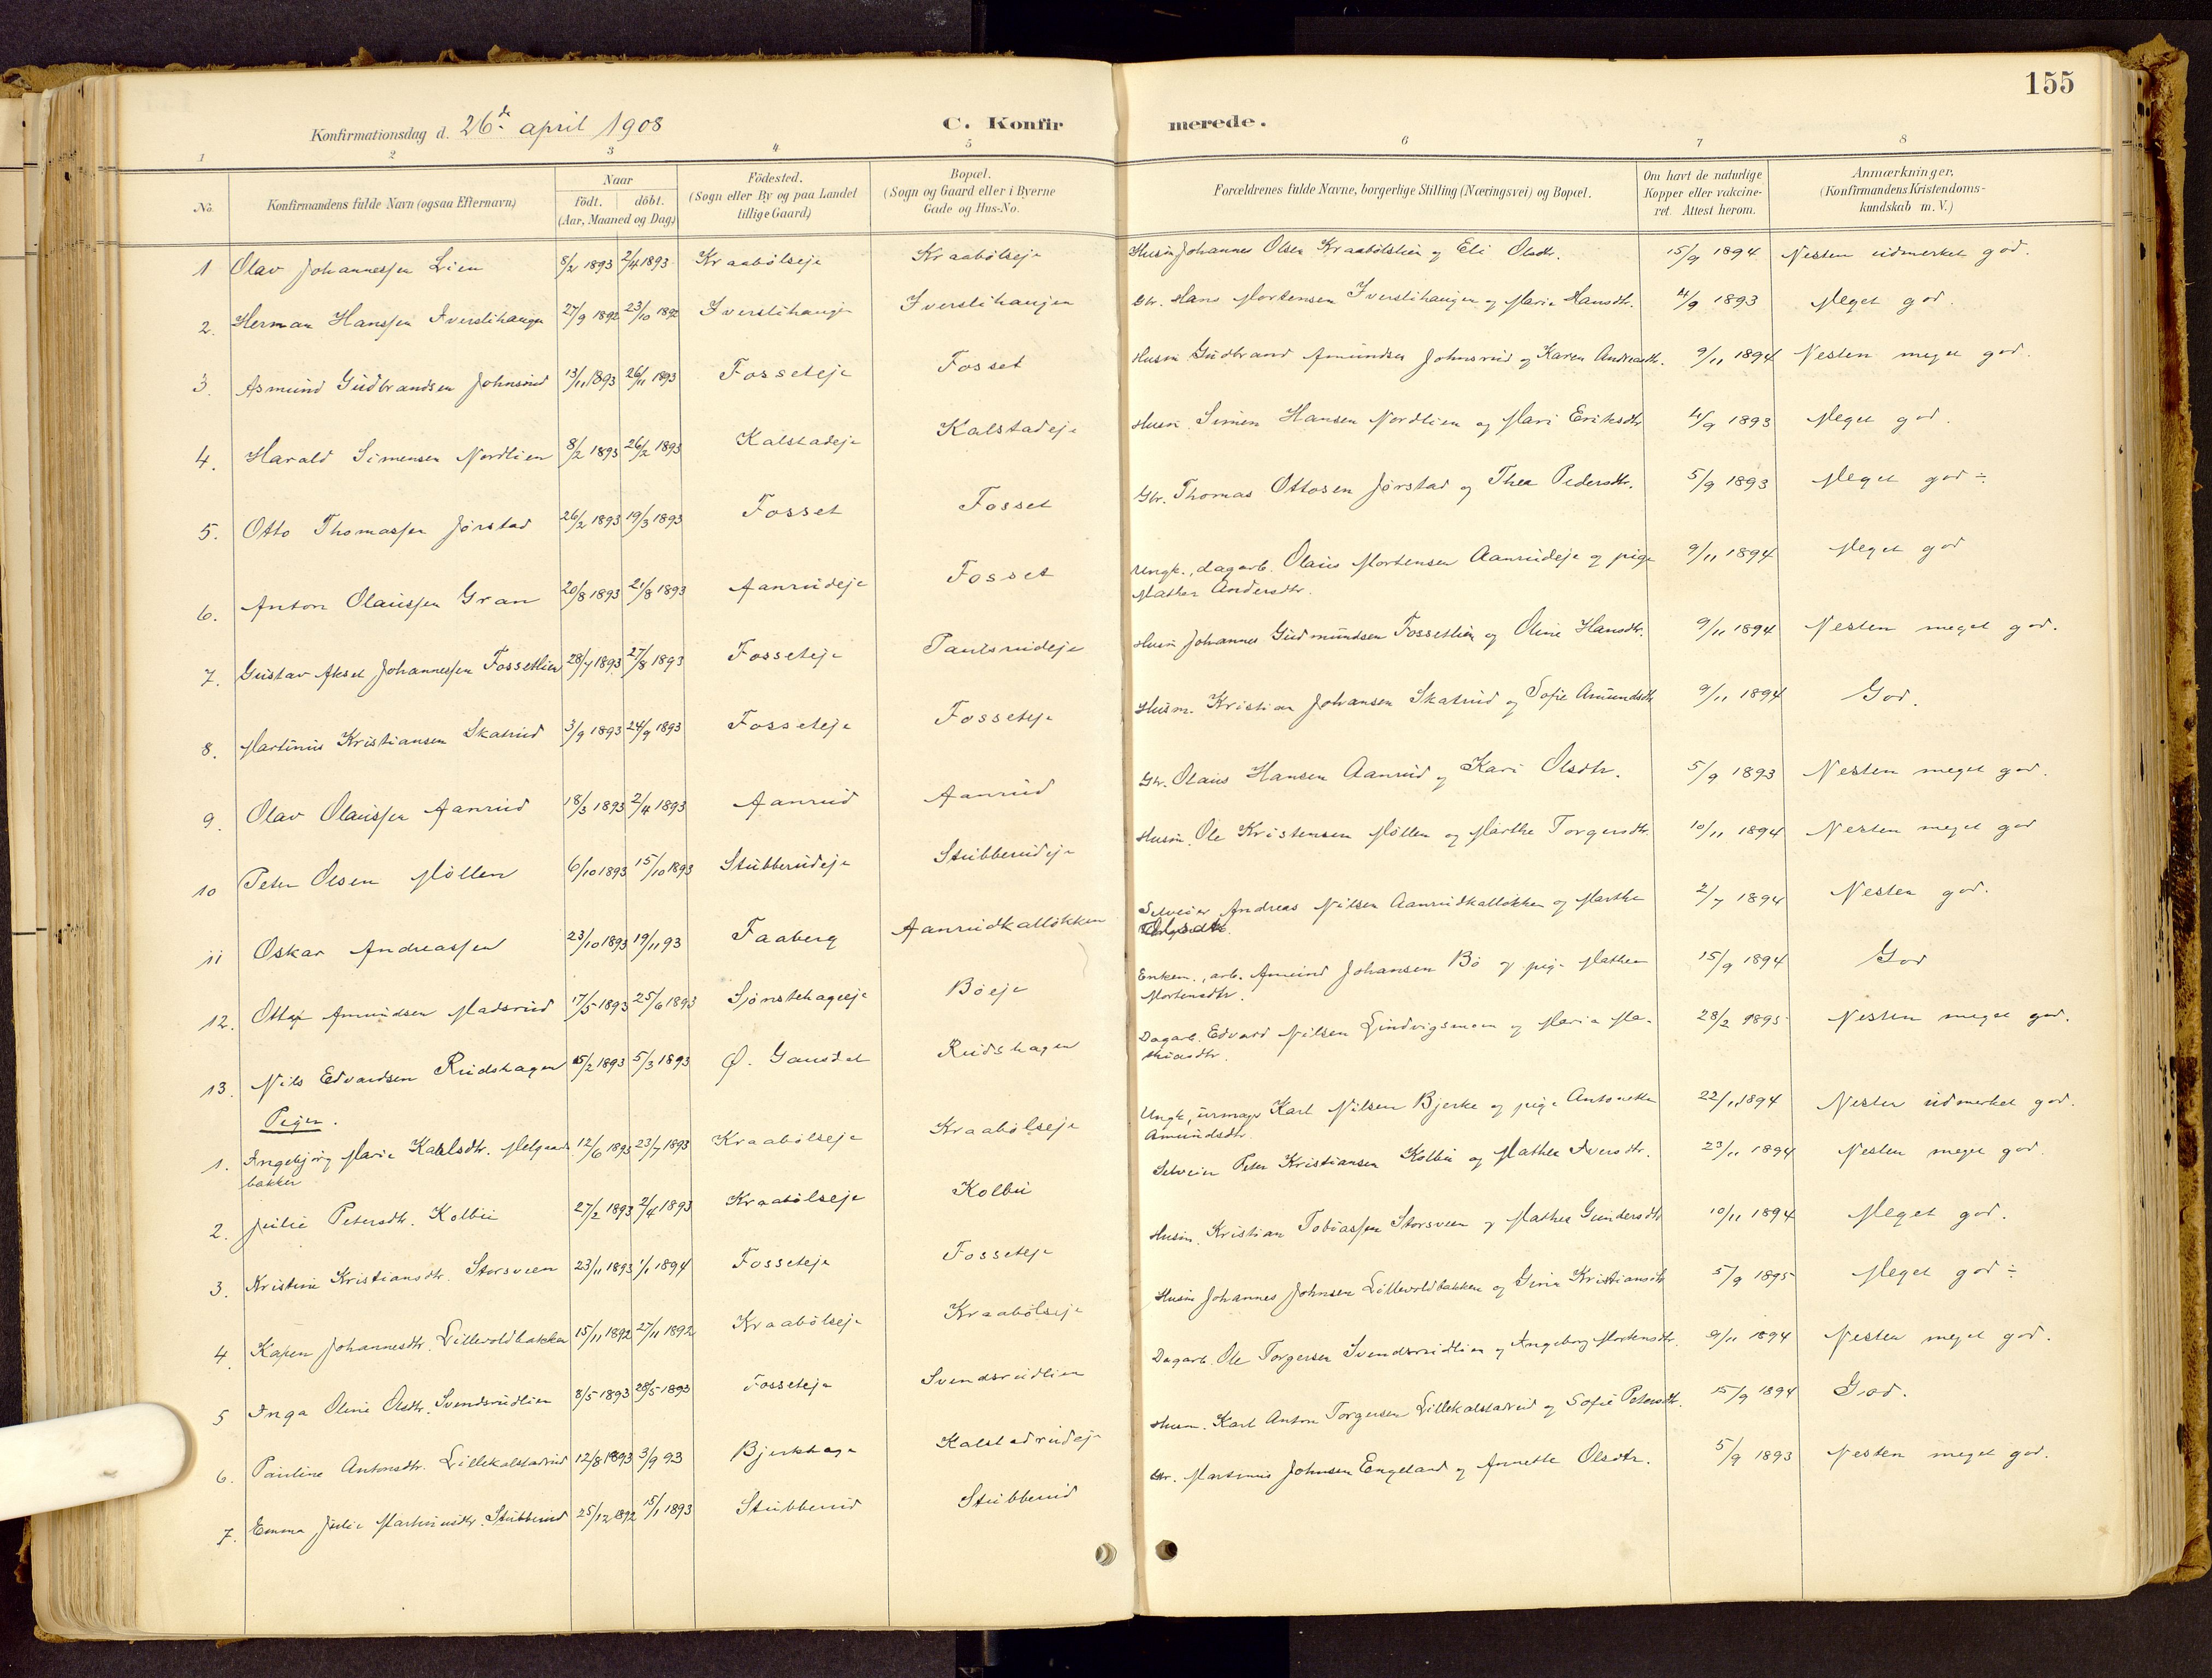 155
Konfirmationsdag d. 26de april 1908 C. Konfirmerede.
1 2 3 4 5 6 7 8
No. Konfirmandens fulde Navn (ogsaa Efternavn) Naar födt. döbt. (Aar, Maaned og Dag) Födested. (Sogn eller By og paa Landet tillige Gaard) Bopæl. (Sogn og Gaard eller i Byerne Gade og Hus-No. Forældrenes fulde Navne, borgerlige Stilling (Næringsvei) og Bopæl. Om havt de naturlige Kopper eller vakcineret. Attest herom. Anmærkninger, (Konfirmandens Kristendomskundskab m. V.)
1 Olav Johannessen Lien 8/2 1893 2/4 1893 Kraabölseje Kraabölseje Husm Johannes Olsen Kraabölslien og Eli Olsdtr. 15/9 1894 Nesten udmerket god.
2. Herman Hanssen Iverslihaugen 27/9 1892 23/10 1892 Iverslihaugen Iverslihaugen Gbr. Hans Mortensen Iverslihaugen og Marie Hansdtr. 4/9 1893 Meget god.
3. Asmund Gudbrandsen Johnsrud 13/11 1893 26/11 1893 Fosseteje Fosset Husm Gudbrand Amundsen Johnsrud og Karen Andreasdtr. 9/11 1894 Nesten meget god.
4. Harald Simensen Nordlien 8/2 1893 26/2 1893 Kalstadeje Kalstadeje Husm. Simen Hansen Nordlien og Mari Eriksdtr 4/9 1893 Meget god.
5. Otto Thomassen Jörstad 26/2 1893 19/3 1893 Fosset Fosset Gbr. Thomas Ottosen Jörstad og Thea Pedersdtr. 5/9 1893 Meget god ÷
6. Anton Olaussen Gran 20/8 1893 21/8 1893 Aanrudeje Fosset Ungk., dagarb. Olaus Mortensen Aanrudeje og pige 9/11 1894 Meget god
Mathea Andersdtr.
7. Gustav Aksel Johannessen Fossetlien 28/7 1893 27/8 1893 Fosseteje Paulsrudeje Husm Johannes Gudmundsen Fossetlien og Oline Hansdtr. 9/11 1894 Nesten meget god.
8. Martinus Kristiansen Skatrud 3/9 1893 24/9 1893 Fosseteje Fosseteje Husm. Kristian Johansen Skatrud og Sofie Amundsdtr 9/11 1894 God.
9. Olav Olaussen Aanrud 18/3 1893 2/4 1893 Aanrud Aanrud Gbr. Olaus Hansen Aanrud og Kari Olsdtr. 5/9 1893 Nesten meget god.
10 Peter Olsen Möllen 6/10 1893 15/10 1893 Stubberudeje Stubberudeje Husm. Ole Kristensen Möllen og Marthe Torgersdtr. 10/11 1894 Nesten meget god
11 Oskar Andreassen 23/10 1893 19/11 93 Faaberg Aanrudkallökken Selveier Andreas Nilsen Aanrudkallökken og Marthe 2/7 1894 Nesten god.
Olsdtr.
12. Otto Amundsen Madsrud 17/5 1893 25/6 1893 Böeje Enkem., arb. Amund Johansen Bö og pige Mathea 15/9 1894 God
Mortensdtr.
13. Nils Edvardsen Rudshagen 15/2 1893 5/3 1893 Ö. Gausdal Rudshagen Dagarb. Edvard Nilsen Lindvigsmoen og Maria Ma- 28/2 1895 Nesten meget god.
thiasdtr.
Piger.
1. Ingebjörg Marie Karlsdtr. Melgaards 12/6 1893 23/7 1893 Kraabölseje Kraabölseje Ungk, urmager Karl Nilsen Bjerke og pige Antonette 22/11 1894 Nesten udmerket god.
bakken Amundsdtr.
2. Julie Petersdtr. Kolbu 27/2 1893 2/4 1893 Kraabölseje Kolbu Selveier Peter Kristiansen Kolbu og Mathea Iversdtr. 23/11 1894 Nesten meget god.
3. Kristine Kristiansdtr. Storsveen 23/11 1893 1/1 1894 Fosseteje Fosseteje Husm. Kristian Tobiassen Storsveen og Mathea Gundersdtr 10/11 1894 Meget god.
4. Karen Johannesdtr. Lillevoldbakken 15/11 1892 27/11 1892 Kraabölseje Kraabölseje Husm Johannes Johnsen Lillevoldbakken og Gina Kristiansdtr 5/9 1895 Meget god ÷
5 Inga Oline Olsdtr. Svendsrudlien 8/5 1893 28/5 1893 Fosseteje Svendsrudlien Dagarb. Ole Torgersen Svendsrudlien og Ingeborg Mortensdtr. 9/11 1894 Nesten meget god.
6. Pauline Antonsdtr. Lillekalstadrud 12/8 1893 3/9 93 Bjerkhage Kalstadrudeje Husm. Karl Anton Torgersen Lillekalstadrud og Sofie Petersdtr. 15/9 1894 God.
7. Emma Julie Martinusdtr. Stubberud 25/12 1892 15/1 1893 Stubberud Stubberud Gbr. Martinus Johnsen Engeland og Annette Olsdtr. 5/9 1893 Nesten meget god.